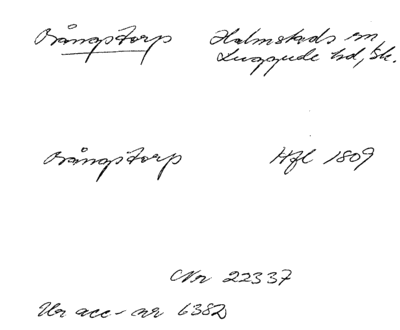 Bångstorp Halmstads sn,
Luggude hd, Sk.
Bångstorp Hfl 1809
Nr 22337
Ur acc-nr 6382